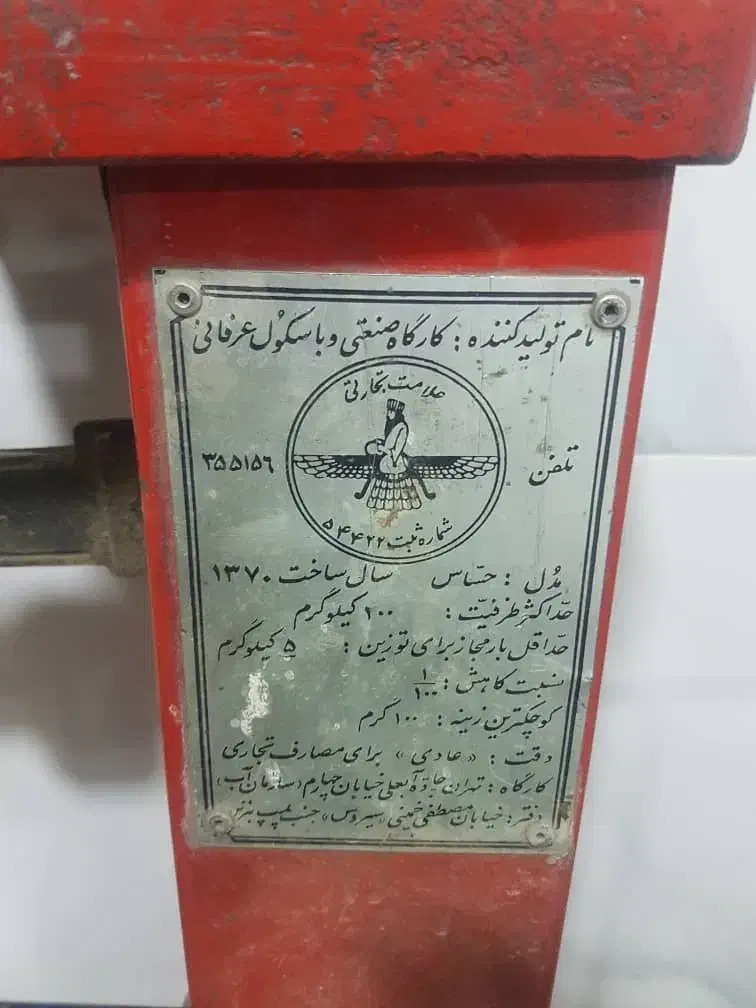 نام تولید کننده : کارگاه صنعتی و باسکول عرفانی
علامت تجارتی
تلفن ۳۵۵۱۵۶
شماره ثبت ۵۴۴۲۲
مدل : حسّاس سال ساخت ۱۳۷۰
حدّاکثر ظرفیّت : ۱۰۰ کیلوگرم
حدّاقل بار مجاز برای توزین : ۵ کیلوگرم
نسبت کاهش : ۱/۱۰۰
کوچکترین زینه : ۱۰۰ گرم
دقت : «عادی» برای مصارف تجاری
کارگاه : تهران جادۀ آبعلی خیابان چهارم (سازمان آب)
دفتر : خیابان مصطفی خمینی «سیروس» جنب پمپ بنزین